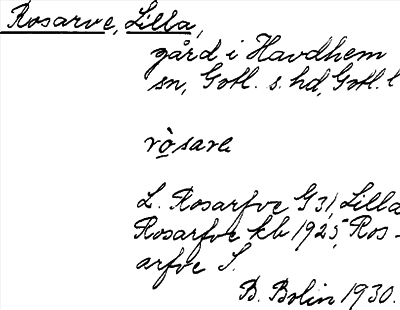 Rosarve, Lilla,
gård i Havdhem
sn, Gotl. s. hd, Gotl. l
ròsare
L. Rosarfve G 31, Lilla
Rosarfve kb 1925, Ros-
arfve S.
B. Bolin 1930.